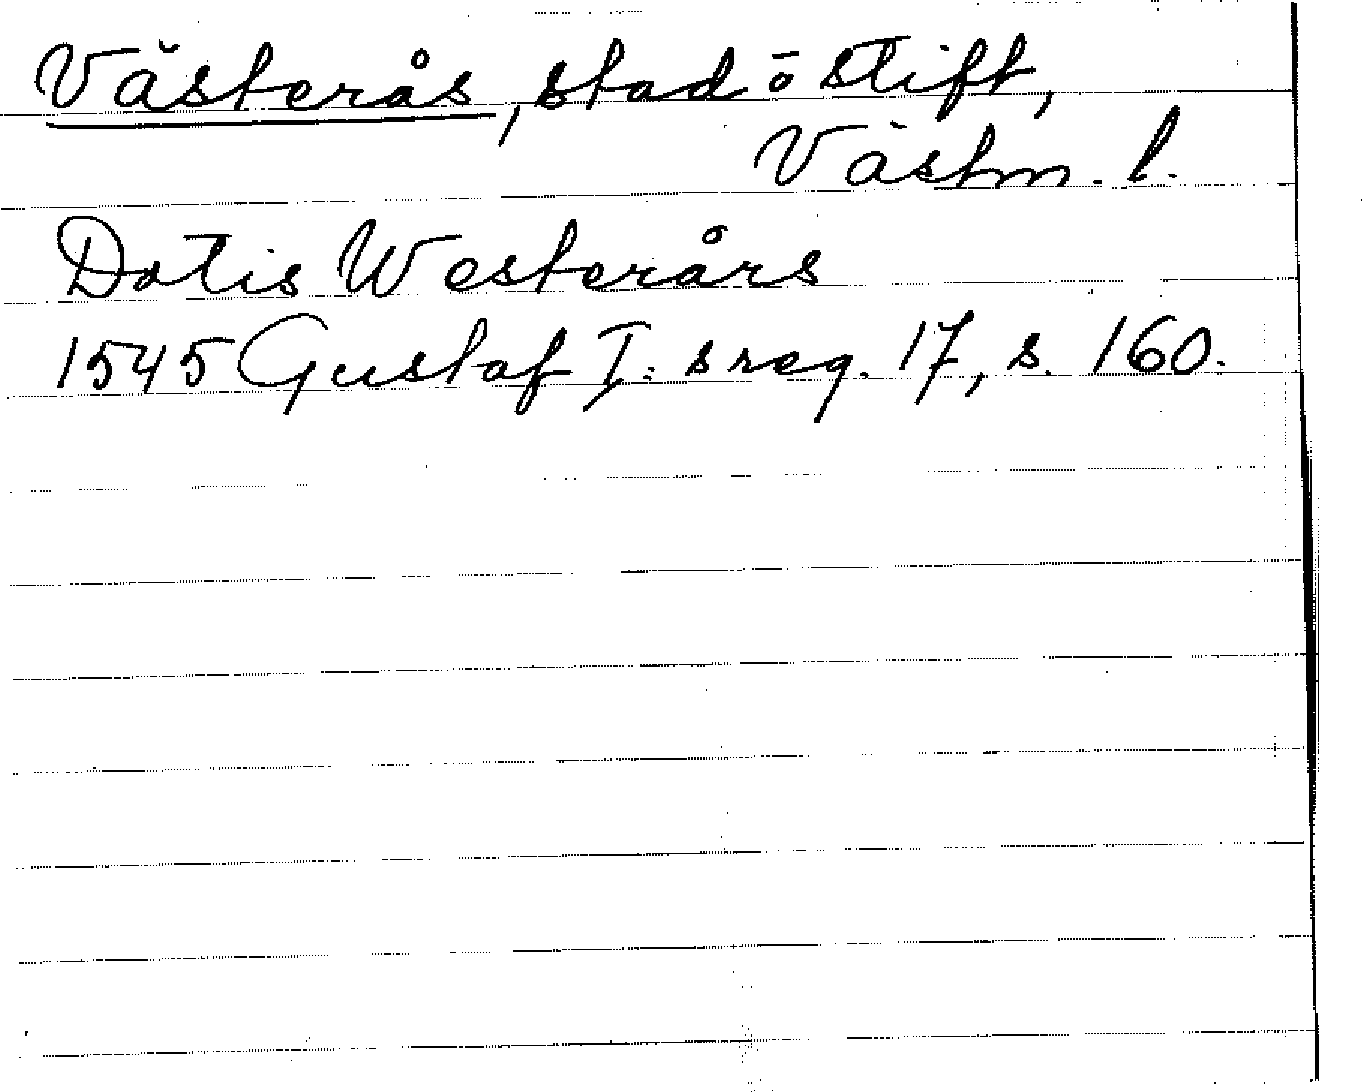 Västerås, stad ō stift,
Västm. l.
Datis Westerårs
1545 Gustaf I:s reg. 17, s. 160.